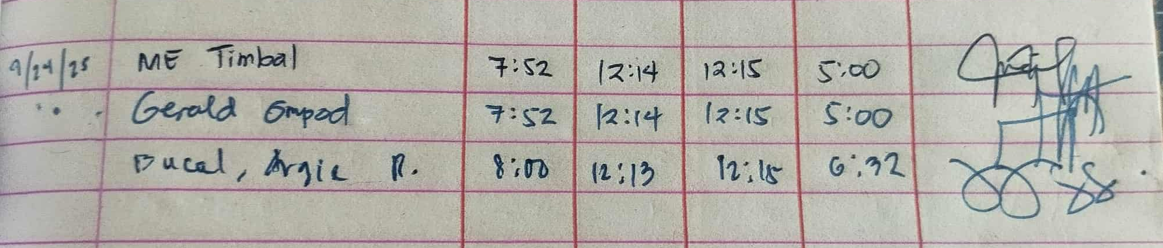 9/24/25 ME Timbal 7:52 12:14 12:15 5:00
" Gerald Ompod 7:52 12:14 12:15 5:00
Bucal, Argie R. 8:00 12:13 12:15 6:32